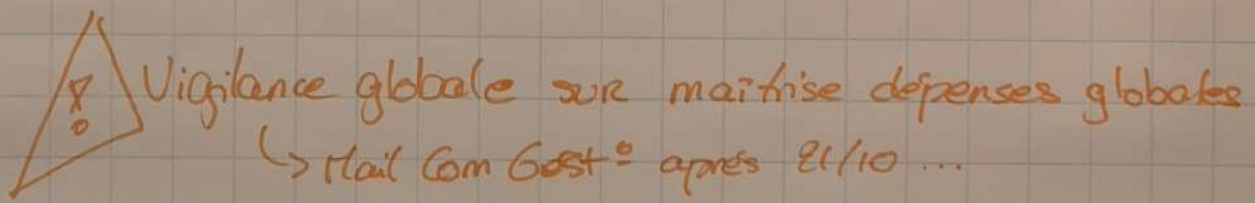 Vigilance globale sur maîtrise dépenses globales
↳ Mail Com Gest° après 21/10 ...